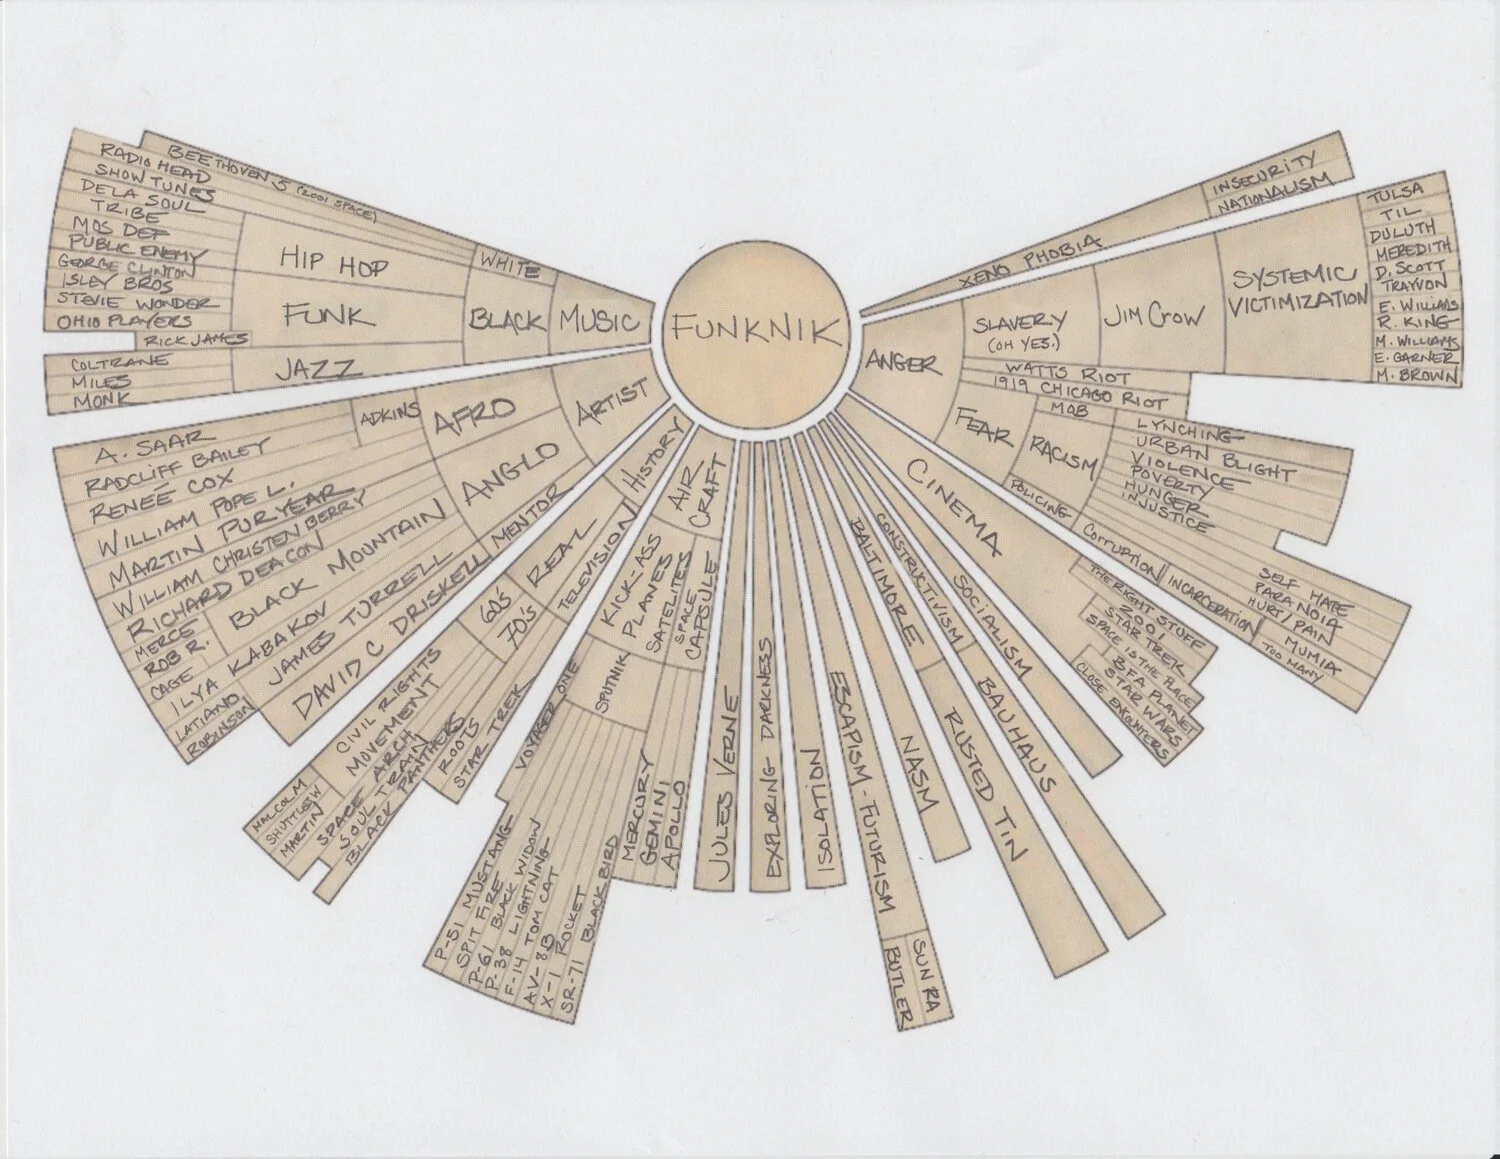 FUNKNIK
MUSIC
WHITE
BEETHOVEN 5 (2001 SPACE)
RADIO HEAD
SHOW TUNES
BLACK
HIP HOP
DE LA SOUL
TRIBE
MOS DEF
PUBLIC ENEMY
FUNK
GEORGE CLINTON
ISLEY BROS
STEVIE WONDER
OHIO PLAYERS
RICK JAMES
JAZZ
COLTRANE
MILES
MONK
ARTIST
AFRO
ADKINS
A. SAAR
RADCLIFF BAILEY
RENEE COX
WILLIAM POPE L.
MARTIN PURYEAR
ANGLO
WILLIAM CHRISTENBERRY
RICHARD DEACON
BLACK MOUNTAIN
MERCE
ROB R.
CAGE
ILYA KABAKOV
LATIANO
ROBINSON
JAMES TURRELL
MENTOR
DAVID C DRISKELL
HISTORY
REAL
60S'
70'S
CIVIL RIGHTS
MOVEMENT
MALCOLM
SHUTTLESW
MARTIN
SPACE ARCH
SOUL TRAIN
BLACK PANTHERS
TELEVISION
ROOTS
STAR TREK
AIR
CRAFT
KICK-ASS
PLANES
SATELITES
SPACE
CAPSULE
VOYAGER ONE
SPUTNIK
P-51 MUSTANG
SPIT FIRE
P-61 BLACK WIDOW
P-38 LIGHTNING
F-14 TOM CAT
AV-8B
X-1 ROCKET
SR-71 BLACK BIRD
MERCURY
GEMINI
APOLLO
JULES VERNE
EXPLORING DARKNESS
ISOLATION
ESCAPISM-FUTURISM
BUTLER
SUN RA
NASM
BALTIMORE
RUSTED TIN
CONSTRUCTIVISM
BAUHAUS
SOCIALISM
CINEMA
THE RIGHT STUFF
2001
STAR TREK
SPACE IS THE PLACE
BFA PLANET
STAR WARS
CLOSE ENCOUNTERS
ANGER
SLAVERY
(OH YES.)
JIM CROW
SYSTEMIC
VICTIMIZATION
TULSA
TIL
DULUTH
MEREDITH
D. SCOTT
TRAYVON
E. WILLIAMS
R. KING
M. WILLIAMS
E. GARNER
M. BROWN
WATTS RIOT
1919 CHICAGO RIOT
FEAR
RACISM
MOB
LYNCHING
URBAN BLIGHT
VIOLENCE
POVERTY
HUNGER
INJUSTICE
POLICING
CORRUPTION
INCARCERATION
SELF HATE
PARANOIA
HURT/PAIN
MUMIA
TOO MANY
XENO PHOBIA
INSECURITY
NATIONALISM